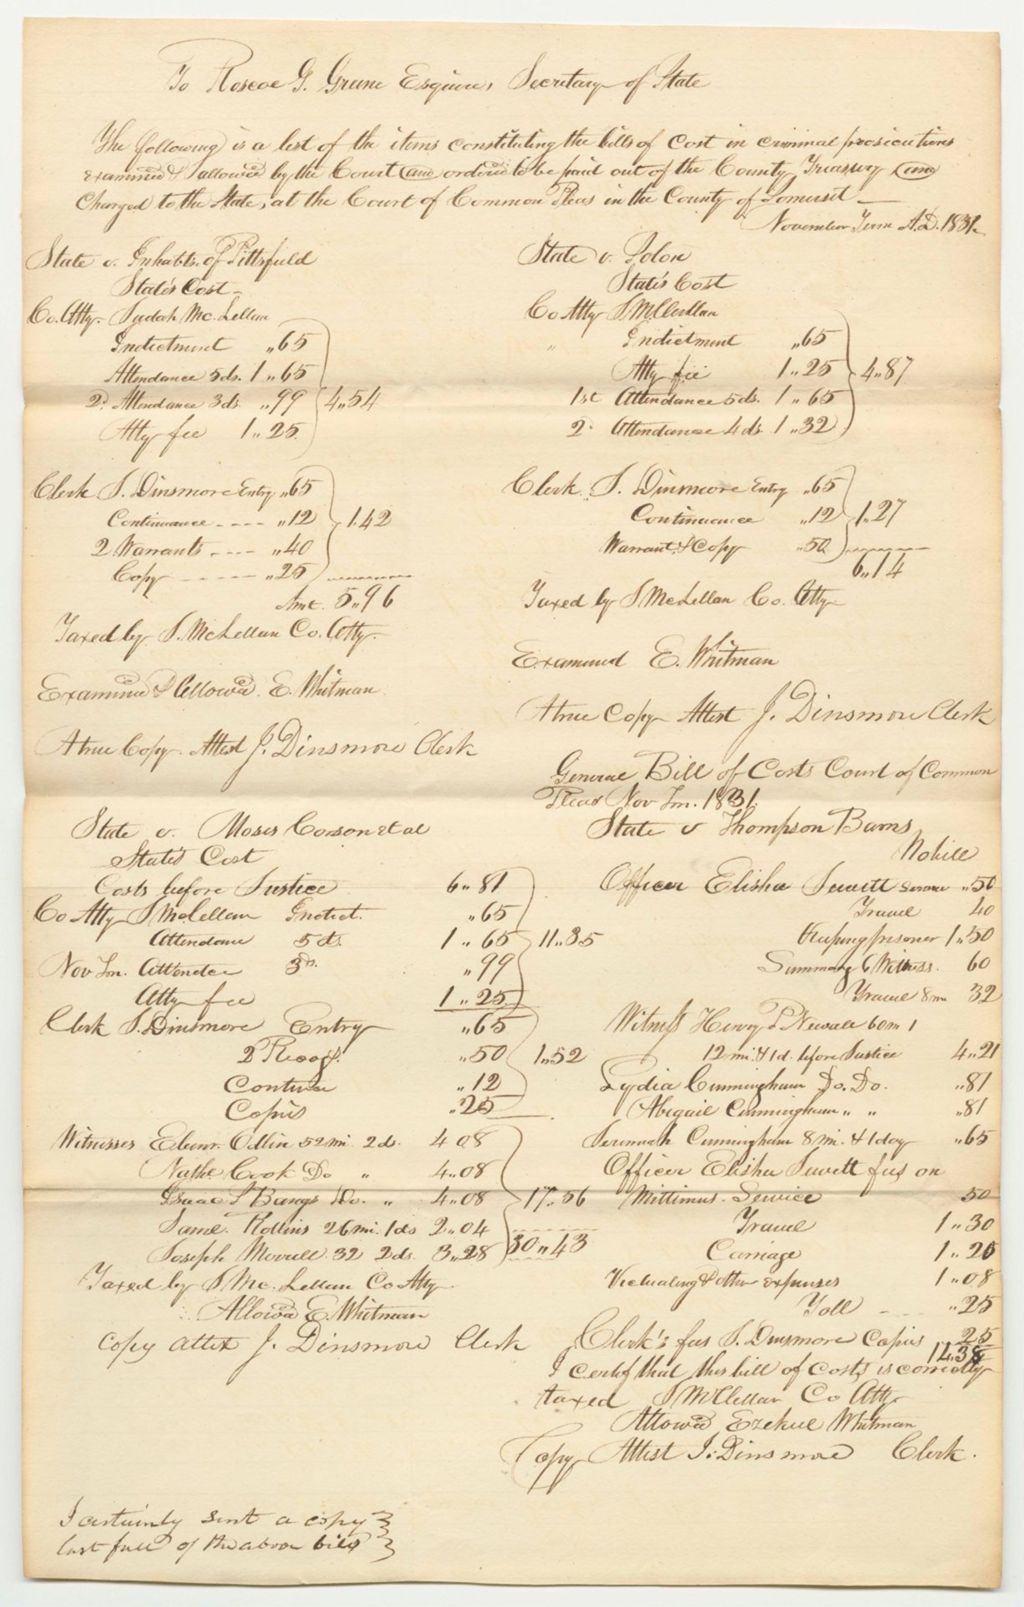 To Roscoe G. Greene Esquire, Secretary of State
The following is a list of the items constituting the bills of Cost in criminal prosecutions
examined & allowed by the Court and ordered to be paid out of the County Treasury and
Charged to the State, at the Court of Common Pleas in the County of Somerset —
November Term A.D. 1831.
State v. Inhabts. of Pittsfield
State's Cost —
Co. Atty. Judah Mc.Lellan
Indictment „65
Attendance 5 ds. 1„65
2d Attendance 3 ds. „99 4„54
Atty fee 1„25
Clerk J. Dinsmore Entry „65
Continuance ---- „12 1.42
2 Warrants ---- „40
Copy ------ „25
Amt. 5„96
Taxed by J. McLellan Co. Atty.
Examined & Allowed. E. Whitman
A true Copy. Attest J. Dinsmore Clerk
State v. Solon
State's Cost
Co Atty J McClellan
„ Indictment „65
Atty fee 1„25 4„87
1st Attendance 5 ds. 1„65
2d Attendance 4 ds 1„32
Clerk. J. Dinsmore Entry „65
Continuance „12 1„27
Warrant & Copy „50
6„14
Taxed by J McLellan Co. Atty
Examined E. Whitman
A true Copy Attest J. Dinsmore Clerk
State v. Moses Corson et al
State's Cost
Costs before Justice 6„81
Co Atty J McLellan Indict. „65
Attendance 5 ds. 1„65 11„35
Nov Tm. Attendce 3 ds. „99
Atty fee 1„25
Clerk J. Dinsmore Entry „65
2 Recog. „50 1„52
Contince „12
Copies „25
Witnesses Ebenr. Odlin 52 mi. 2 ds. 4 08
Nathl Cook Do „ 4„08
Isaac S Bangs Do. „ 4„08 17„56
Saml. Rollins 26 mi. 1 ds 2„04
Joseph Merrill 32 2 ds. 3„28 30„43
Taxed by J Mc.Lellan Co Atty
Allowed E Whitman
Copy attest J. Dinsmore Clerk
General Bill of Costs Court of Common
Pleas Nov Tm. 1831.
State v Thompson Barns
No bill
Officer Elisha Jewett Service „50
Travel 40
Keeping prisoner 1„50
Summong 6 Witness. 60
Travel 8 m 32
Witness Henry P Newall 60 m 1
12 mi. & 1 d. before Justice 4„21
Lydia Cunningham Do. Do. „81
Abigail Cunningham „ „ „81
Jeremiah Cunningham 8 mi. & 1 day „65
Officer Elisha Jewett fees on
Mittimus. Service 50
Travel 1„30
Carriage 1„20
Victualing & other expenses 1„08
Toll ---- „25
Clerk's fees J. Dinsmore Copies 25
14.38
I certify that this bill of Costs is correctly
taxed J McClellan Co Atty
Allowed Ezekiel Whitman
Copy Attest J. Dinsmore Clerk.
I certainly sent a copy
last fall of the above bills